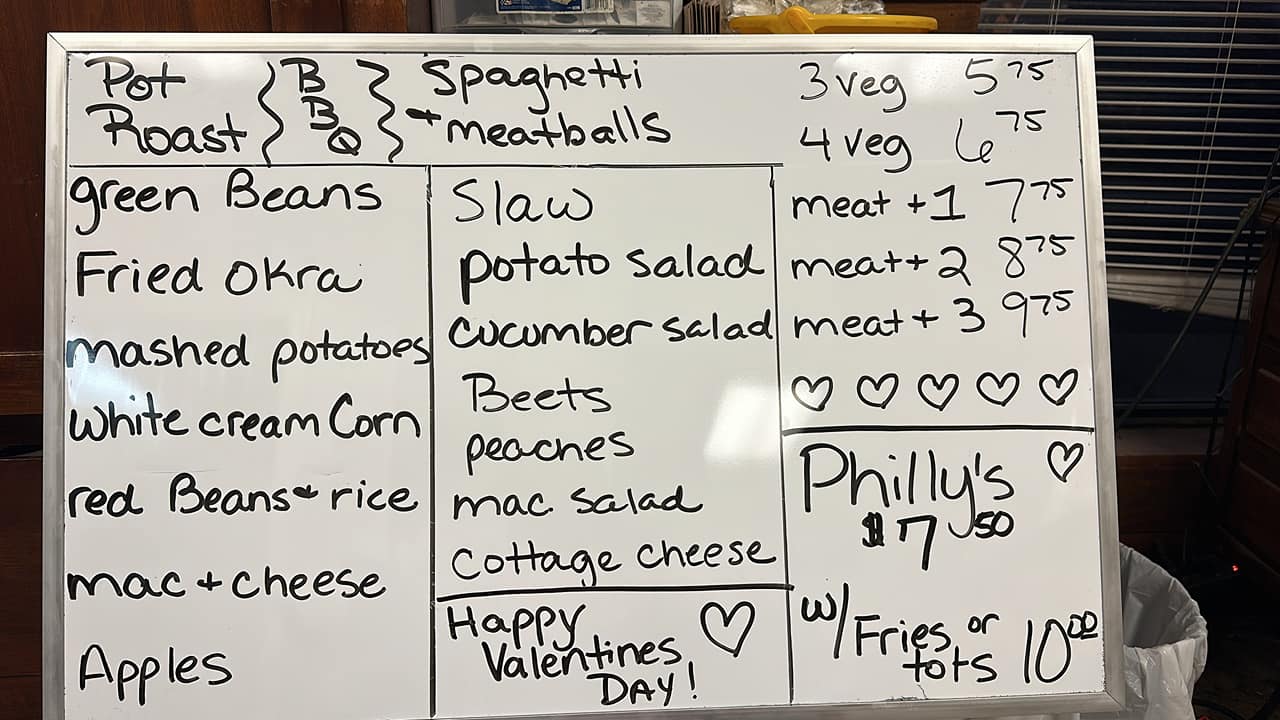 Pot
Roast
B
B
Q
Spaghetti
+ meatballs
green Beans
Fried okra
mashed potatoes
white cream Corn
red Beans + rice
mac + cheese
Apples
Slaw
potato salad
cucumber salad
Beets
peaches
mac salad
Cottage cheese
Happy
Valentines
DAY!
3 veg 5 75
4 veg 6 75
meat + 1 7 75
meat + 2 8 75
meat + 3 9 75
Philly's
$7 50
w/ Fries or
tots 10 00